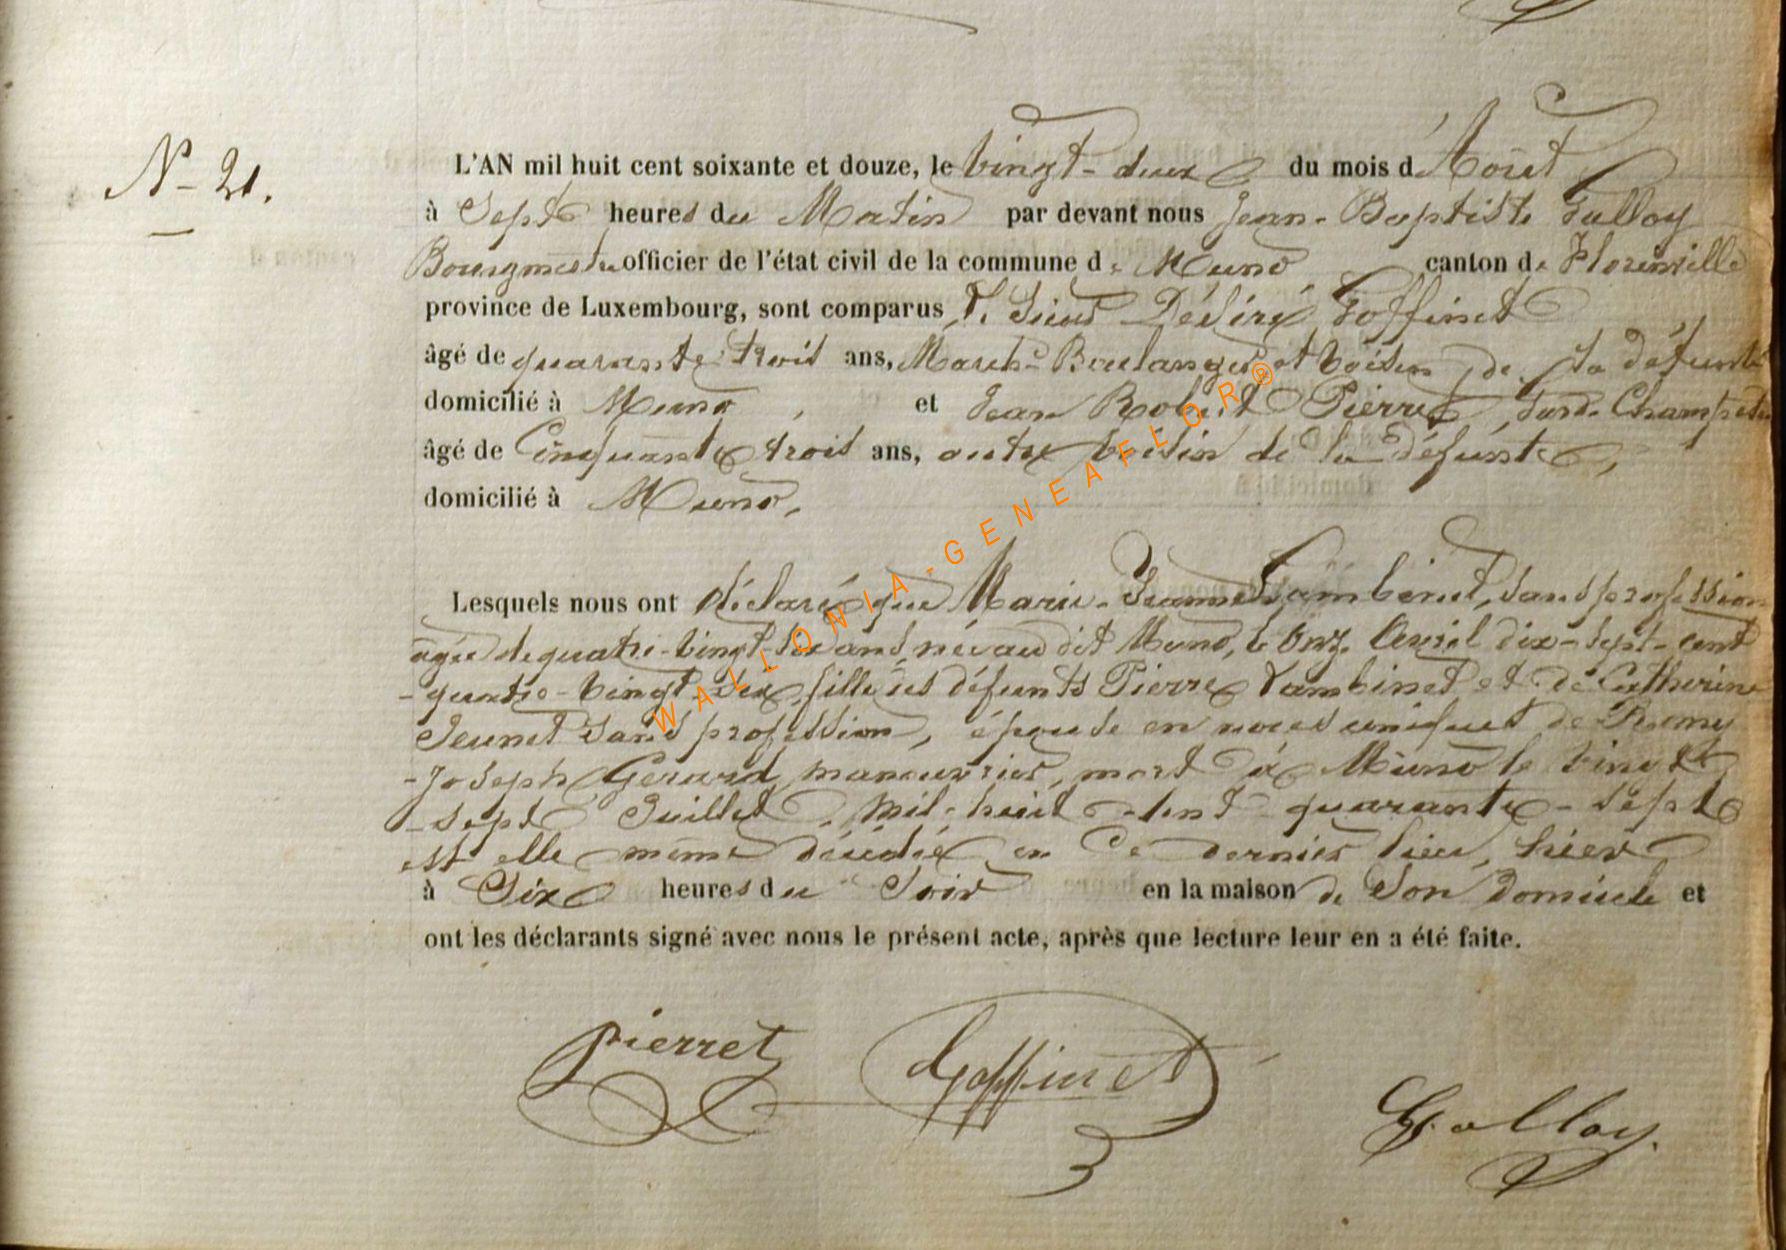 N° 21.
L'AN mil huit cent soixante et douze, le vingt-deux du mois d'Aout
à Sept heures du Matin par devant nous Jean-Baptiste Golloy
Bourgmestre officier de l'état civil de la commune de Muno canton de Florenville
province de Luxembourg, sont comparus, le Sieur Désiré Goffinet
âgé de quarante trois ans, March. Boulanger et voisin de la défunte
domicilié à Muno, et Jean Robert Pierret, Garde Champêtre
âgé de Cinquante trois ans, autre voisin de la défunte,
domicilié à Muno,
Lesquels nous ont déclaré que Marie-Jeanne Lambinet, sans profession
agée de quatre-vingt-six ans, née au dit Muno, le onze Avril dix-sept-cent
-quatre-vingt-six, fille des défunts Pierre Lambinet et de Catherine
Jeunet sans profession, épouse en noces uniques de Remy
-Joseph Gerard, manouvrier, mort à Muno le vingt
-sept Juillet, mil-huit-cent-quarante-sept
est elle meme décédée en ce dernier lieu, hier
à Six heures du Soir en la maison de Son domicile et
ont les déclarants signé avec nous le présent acte, après que lecture leur en a été faite.
Pierret Goffinet
Golloy.
WALLONIA-GENEAFLOR®